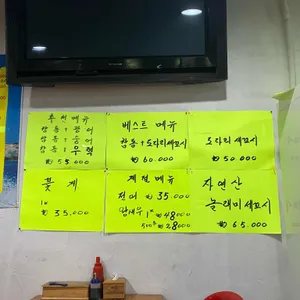 추천메뉴
광어
우럭
₩55.000
베스트 메뉴
도다리세꼬시
₩60.000
도다리세꼬시
₩50.000
꽃게
1K
₩35.000
계절메뉴
전어 ₩35.000
1K ₩48000
500g ₩28000
자연산
놀래미세꼬시
₩65.000